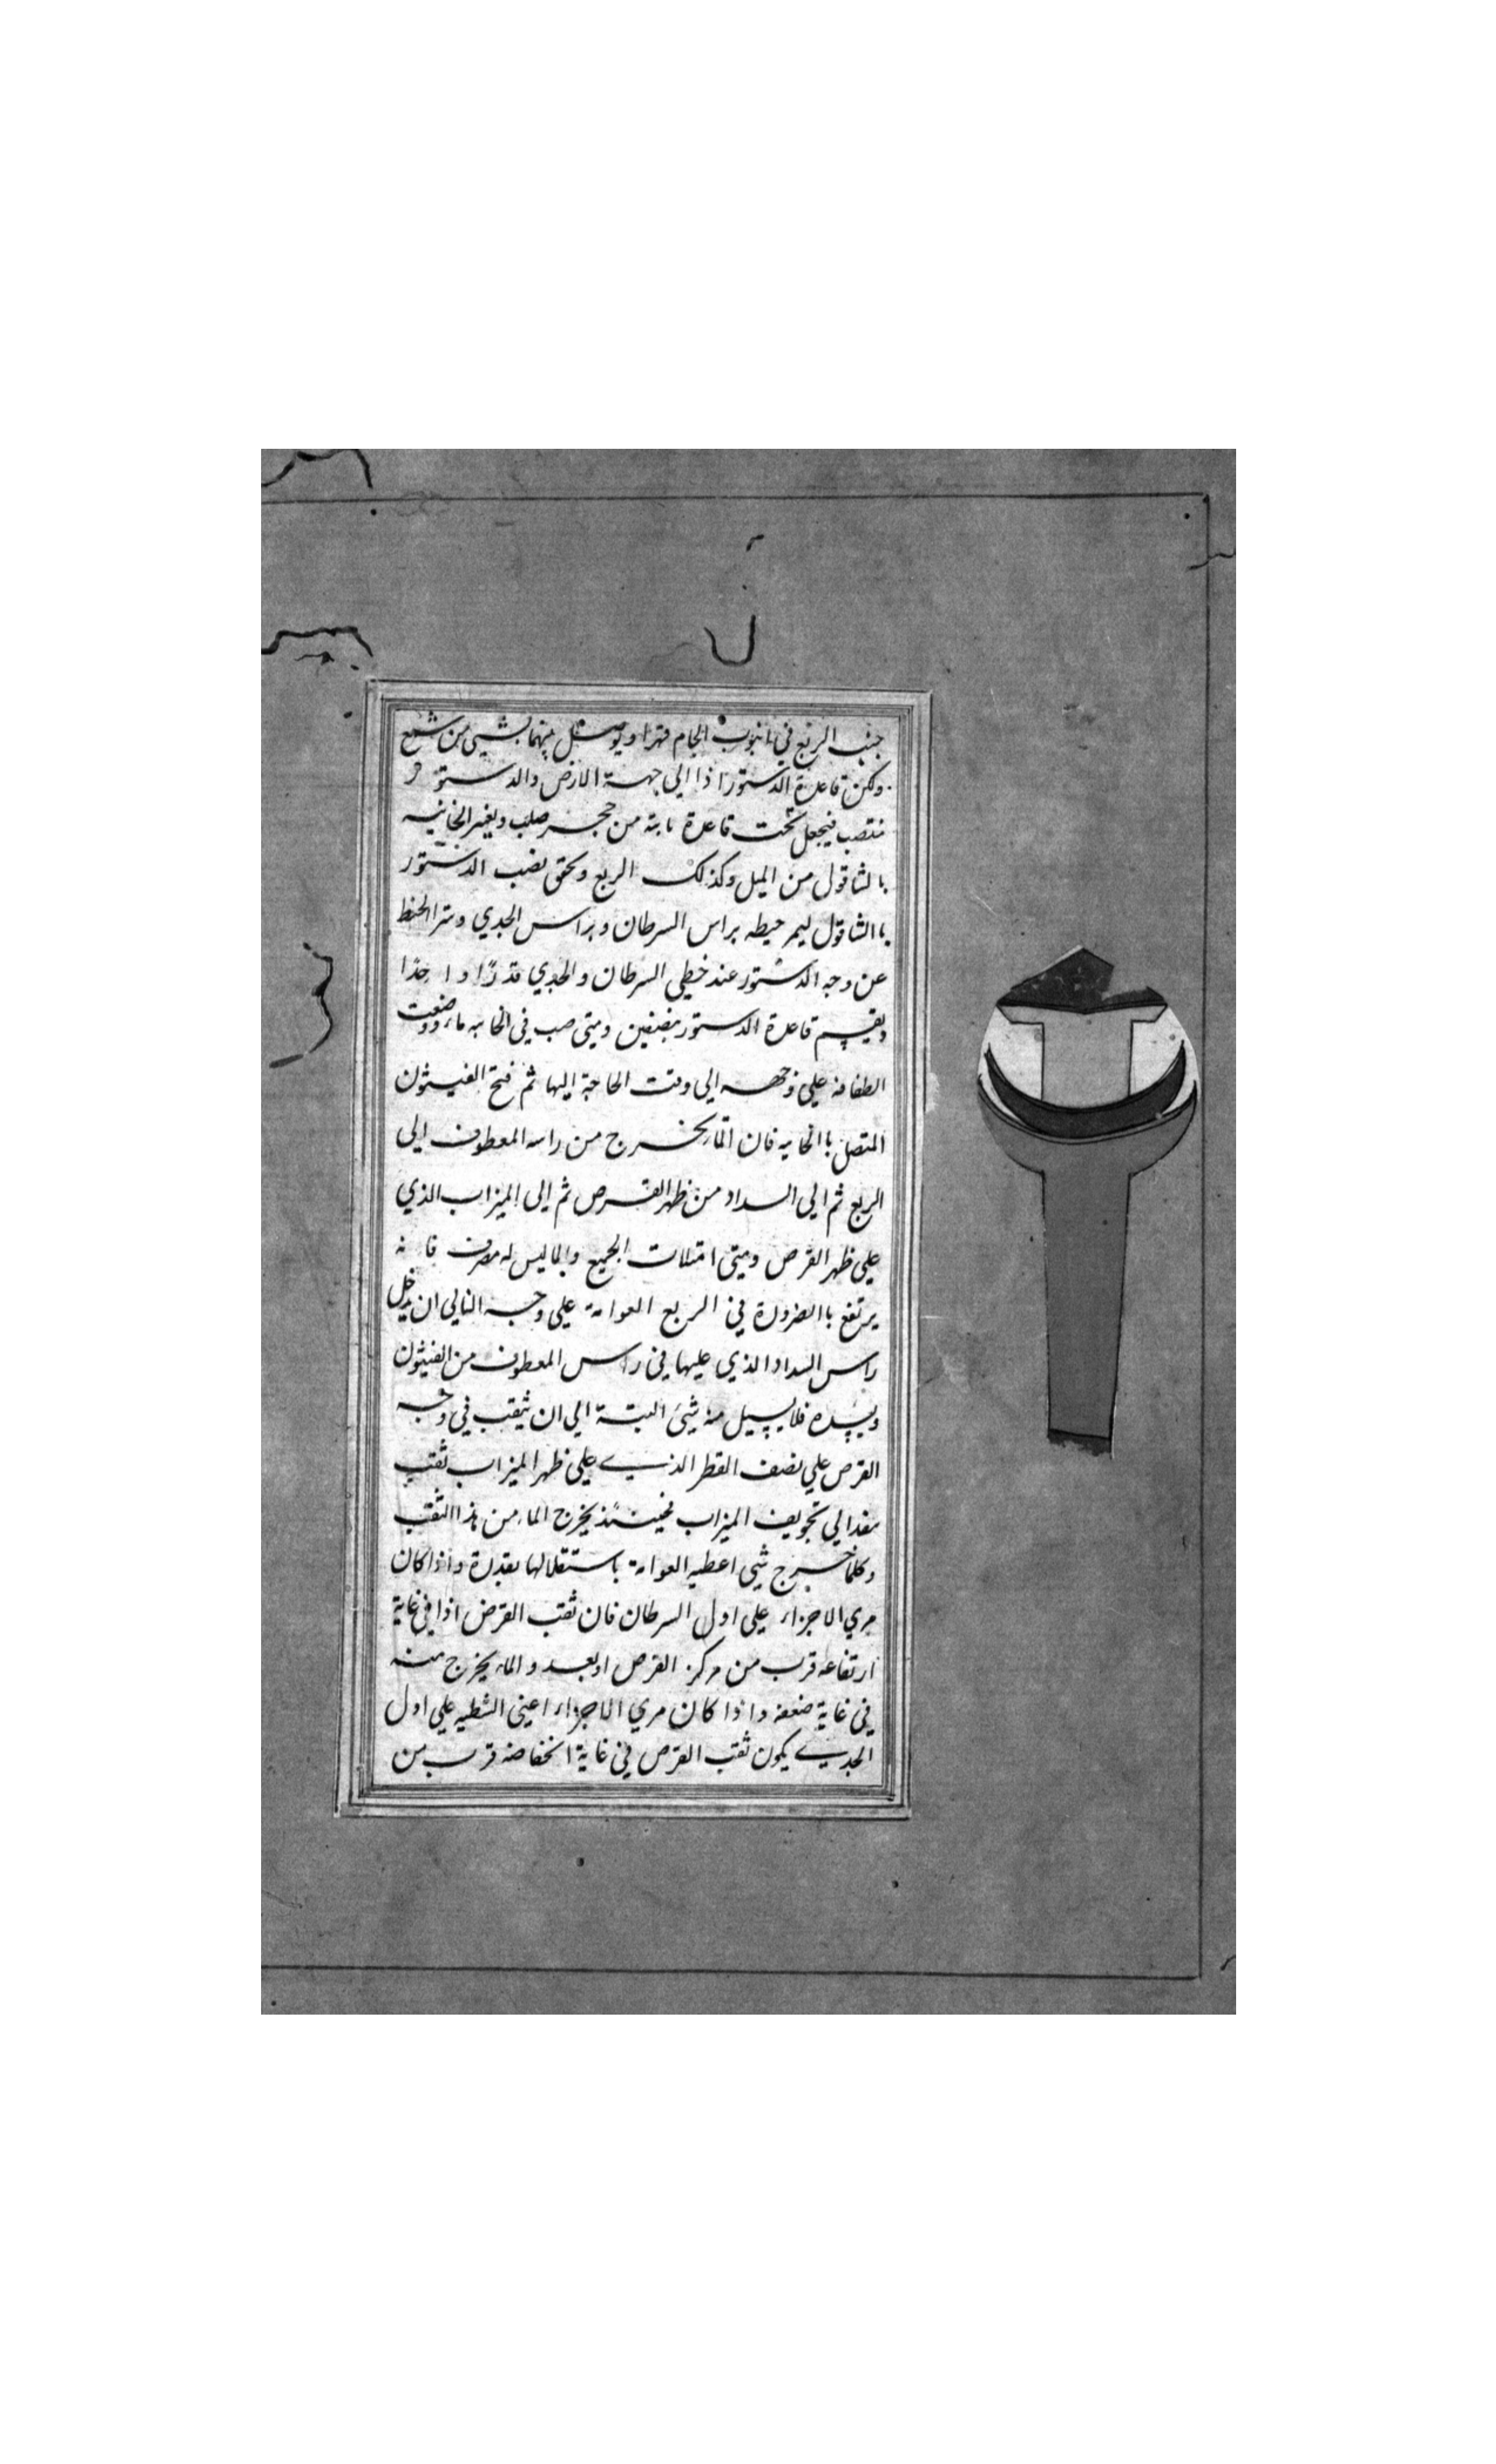 جنب الربع في انبوب الجام قهرا ويوصل بينهما بشيء من شمع
ولكن قاعدة الدستور اذا الى جهة الارض والدستور
منتصب فيجعل تحت قاعدة ثابتة من حجر صلب ويغير الخانيه
بالشاقول من الميل وكذلك الربع ويحقق نصب الدستور
باالشاقول ليمر خيطه براس السرطان وبراس الجدي وستر الخيط
عن وجه الدستور عند خطي السرطان والجدي قدرا واحدا
ويقسم قاعدة الدستور بنصفين ومتى صب في الخابيه ماء ووضعت
الطفافة على وجهه الى وقت الحاجة اليها ثم فتح الفيثون
المتصل باالخابيه فان الماء يخرج من راسه المعطوف الى
الربع ثم الى السداد من ظهر القرص ثم الى الميزاب الذي
على ظهر القرص ومتى امتلات الجميع والماليس له مصرف فانه
يرتفع باالضرورة في الربع العوامة على وجه الى ان يدخل
راس السداد الذي عليها في راس المعطوف من الفيثون
ويسده فلا يسيل منه شئ البتة الى ان يثقب في وجه
القرص على نصف القطر الذي على ظهر الميزاب ثقب
ينفد الى تجويف الميزاب فحينئذ يخرج الماء من هذا الثقب
وكلما خرج شي اعطيه العوامة باستقلالها بقدرة واذا كان
مري الاجزاء على اول السرطان فان ثقب القرض اذا في غاية
ارتفاعه قرب من مركز القرص او بعد والماء يخرج منه
في غاية ضعفه واذا كان مري الاجزاء اعني الشظيه على اول
الجدي يكون ثقب القرص في غاية انخفاضه قرب من